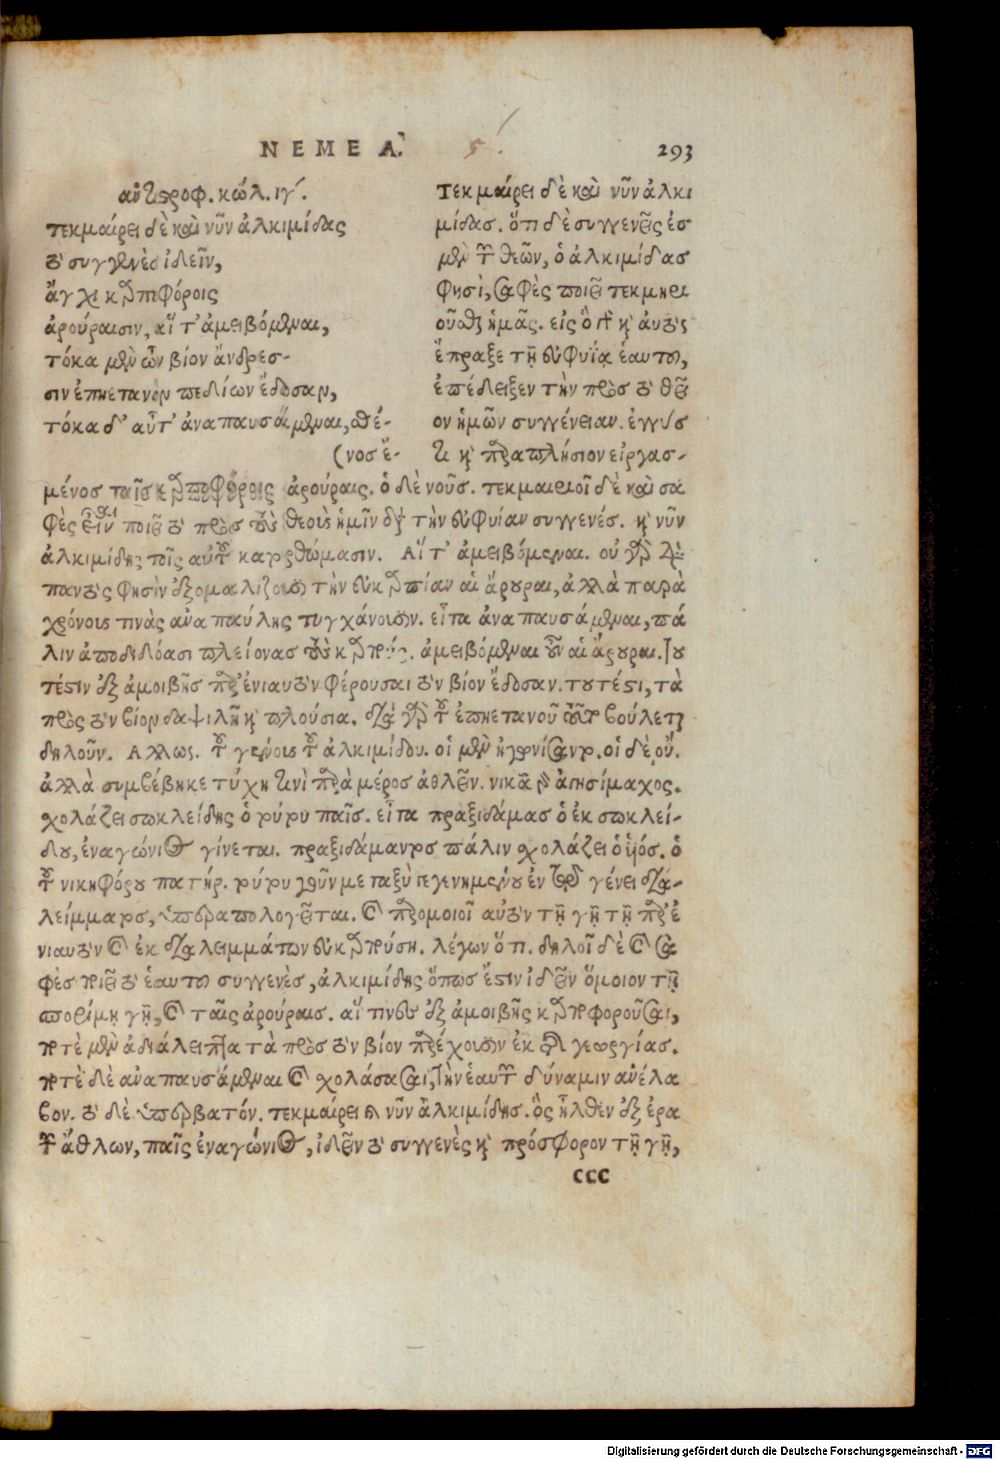 ΝΕΜΕΑ. ς΄. 293
ἀντιστροφ. κώλ. ιγ΄.
τεκμαίρει δὲ καὶ νῦν ἀλκιμίδας
τὸ συγγενὲς ἰδεῖν,
ἄγχι καρποφόροις
ἀρούραισιν, αἵ τ' ἀμειβόμεναι,
τόκα μὲν ὦν βίον ἄνδρεσ-
σιν ἐπηετανὸν πεδίων ἔδοσαν,
τόκα δ' αὖτ' ἀναπαυσάμεναι, σθέ-
(νοσ ἔ-
Τεκμαίρει δὲ καὶ νῦν ἀλκι
μίδας. ὅτι δὲ συγγενεῖς ἐσ
μὲν τῶν θεῶν, ὁ ἀλκιμίδασ
φησὶ, σαφὲς ποιεῖ τεκμηρι
οῦσθαι ἡμᾶς. εἰς ὃ γὰρ καὶ αὐτὸς
ἔπραξε τῇ εὐφυΐᾳ ἑαυτοῦ,
ἐπέδειξεν τὴν πρὸσ τὸ θεῖ
ον ἡμῶν συγγένειαν. ἐγγύσ
τι καὶ παραπλήσιον εἰργασ-
μένοσ ταῖς καρποφόροις ἀρούραις. ὁ δὲ νοῦσ. τεκμαίρομαι δὲ καὶ σα
φὲς εἶναι ποιεῖ τὸ πρὸσ τοὺς θεοὺς ἡμῖν διὰ τὴν εὐφυίαν συγγενέσ. καὶ νῦν
ἀλκιμίδης τοῖς αὑτοῦ κατορθώμασιν. Αἵ τ' ἀμειβόμεναι. οὐ γὰρ διὰ
παντός φησὶν ἐξομαλίζουσι τὴν εὐκαρπίαν αἱ ἄρουραι, ἀλλὰ παρὰ
χρόνους τινὰς ἀναπαύλης τυγχάνουσιν. εἶτα ἀναπαυσάμεναι, πά
λιν ἀποδιδόασι πλείονασ τοὺς καρπούς. ἀμειβόμεναι οὖν αἱ ἄρουραι. του
τέστιν ἐξ ἀμοιβῆς παρ' ἐνιαυτὸν φέρουσαι τὸν βίον ἔδοσαν. τουτέστι, τὰ
πρὸς τὸν βίον δαψιλῆ καὶ πλούσια. διὰ γὰρ τοῦ ἐπηετανοῦ τοῦτο βούλεται
δηλοῦν. Αλλως. τοῦ γένους τοῦ ἀλκιμίδου. οἱ μὲν ἠγωνίσαντο. οἱ δὲ οὔ.
ἀλλὰ συμβέβηκε τύχῃ τινὶ παρὰ μέρος ἀθλεῖν. νικᾷ γὰρ ἀγησίμαχος.
σχολάζει σωκλείδης ὁ τούτου παῖς. εἶτα πραξιδάμας ὁ ἐκ σωκλεί-
δου, ἐναγώνιος γίνεται. πραξιδάμαντος πάλιν σχολάζει ὁ ὑιόσ. ὁ
τοῦ νικηφόρου πατήρ. τούτου γοῦν μεταξὺ γεγενημένου ἐν τῷ γένει δια-
λείμματος, ὑπεραπολογεῖται. καὶ παρομοιοῖ αὐτὸν τῇ γῇ τῇ παρ' ἐ
νιαυτὸν καὶ ἐκ διαλειμμάτων εὐκαρπούσῃ. λέγων ὅτι. δηλοῖ δὲ καὶ σα
φὲσ ποιεῖ τὸ ἑαυτοῦ συγγενὲς, ἀλκιμίδης ὅπως ἔστιν ἰδεῖν ὅμοιον τῇ
σπορίμῃ γῇ, καὶ ταῖς ἀρούραισ. αἵ τινες ἐξ ἀμοιβῆς καρποφοροῦσαι,
ποτὲ μὲν ἀδιάλειπτα τὰ πρὸσ τὸν βίον παρέχουσιν ἐκ τῆς γεωργίας.
ποτὲ δὲ ἀναπαυσάμεναι καὶ σχολάσασαι, τὴν ἑαυτῶν δύναμιν ἀνέλα
βον. τὸ δὲ ὑπερβατόν. τεκμαίρει καὶ νῦν ἀλκιμίδησ. ὃς ἦλθεν ἐξ ἐρα
τῶν ἄθλων, παῖς ἐναγώνιος, ἰδεῖν τὸ συγγενὲς καὶ πρόσφορον τῇ γῇ,
CCC
Digitalisierung gefördert durch die Deutsche Forschungsgemeinschaft - DFG